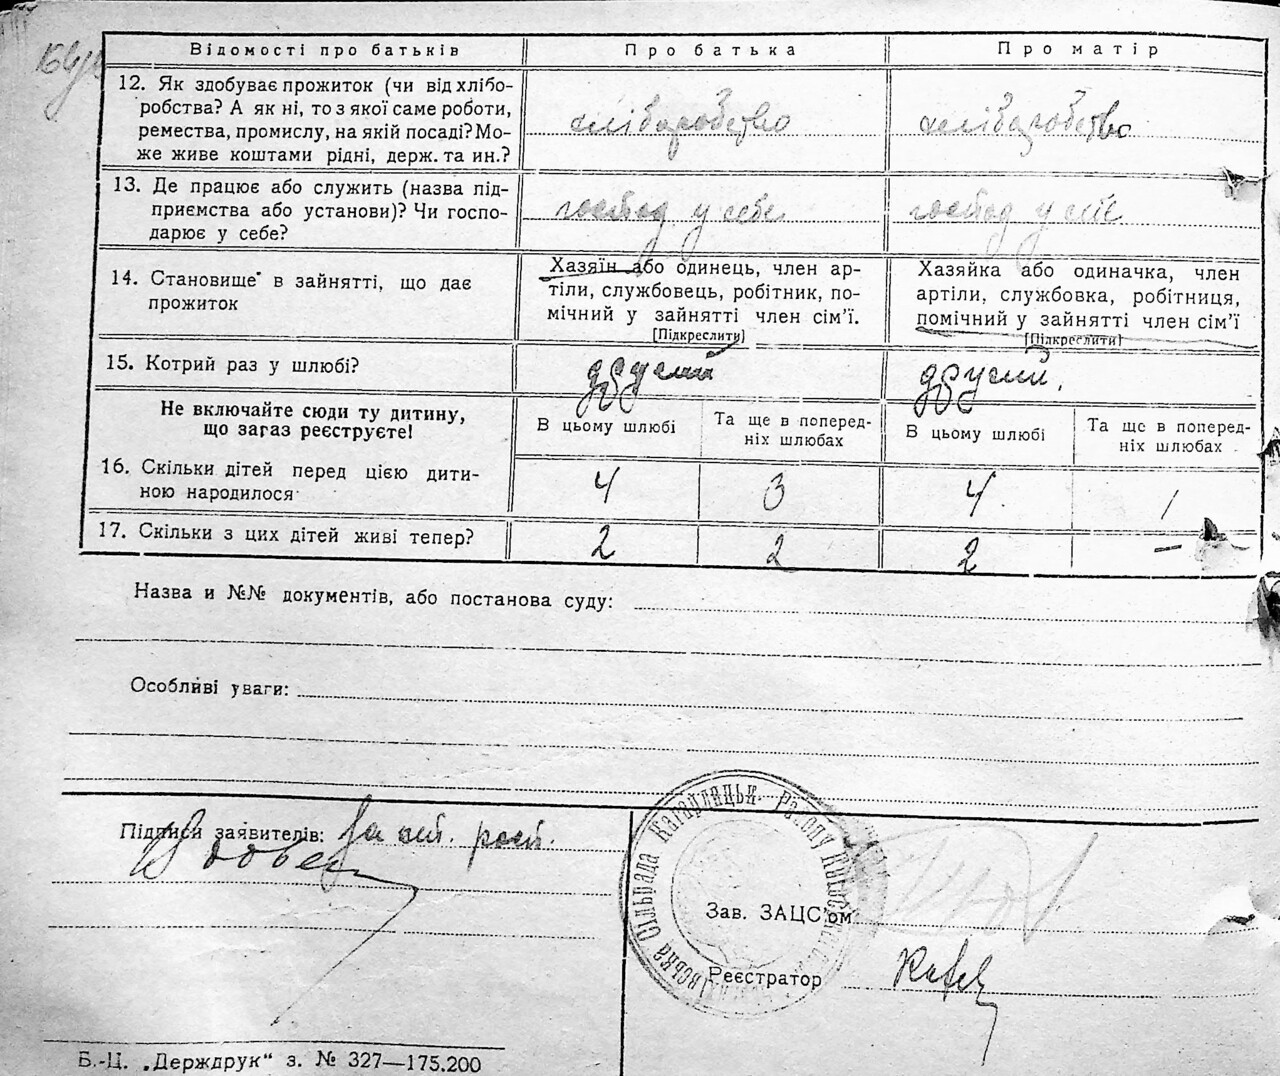 Відомості про батьків Про батька Про матір
12. Як здобуває прожиток (чи від хлібо-
робства? А як ні, то з якої саме роботи,
ремества, промислу, на якій посаді? Мо-
же живе коштами рідні, держ. та ин.?
хліборобство хліборобство
13. Де працює або служить (назва під-
приємства або установи)? Чи госпо-
дарює у себе?
господ у себе господ у себе
14. Становище в зайнятті, що дає
прожиток
Хазяїн або одинець, член ар-
тіли, службовець, робітник, по-
мічний у зайнятті член сім’ї.
[Підкреслити]
Хазяйка або одиначка, член
артіли, службовка, робітниця,
помічний у зайнятті член сім’ї
[Підкреслити]
15. Котрий раз у шлюбі? другий другий.
Не включайте сюди ту дитину,
що загаз реєструєте!
В цьому шлюбі
Та ще в поперед-
ніх шлюбах
В цьому шлюбі
Та ще в поперед-
ніх шлюбах
16. Скільки дітей перед цією дити-
ною народилося
4 3 4 1
17. Скільки з цих дітей живі тепер? 2 2 2 —
Назва и №№ документів, або постанова суду:
Особливі уваги:
Підписи заявителів: За
Сільрада Кагарлицьк. Району
Зав. ЗАЦС'ом
Реєстратор
Б.-Ц. „Держдрук“ з. № 327—175.200